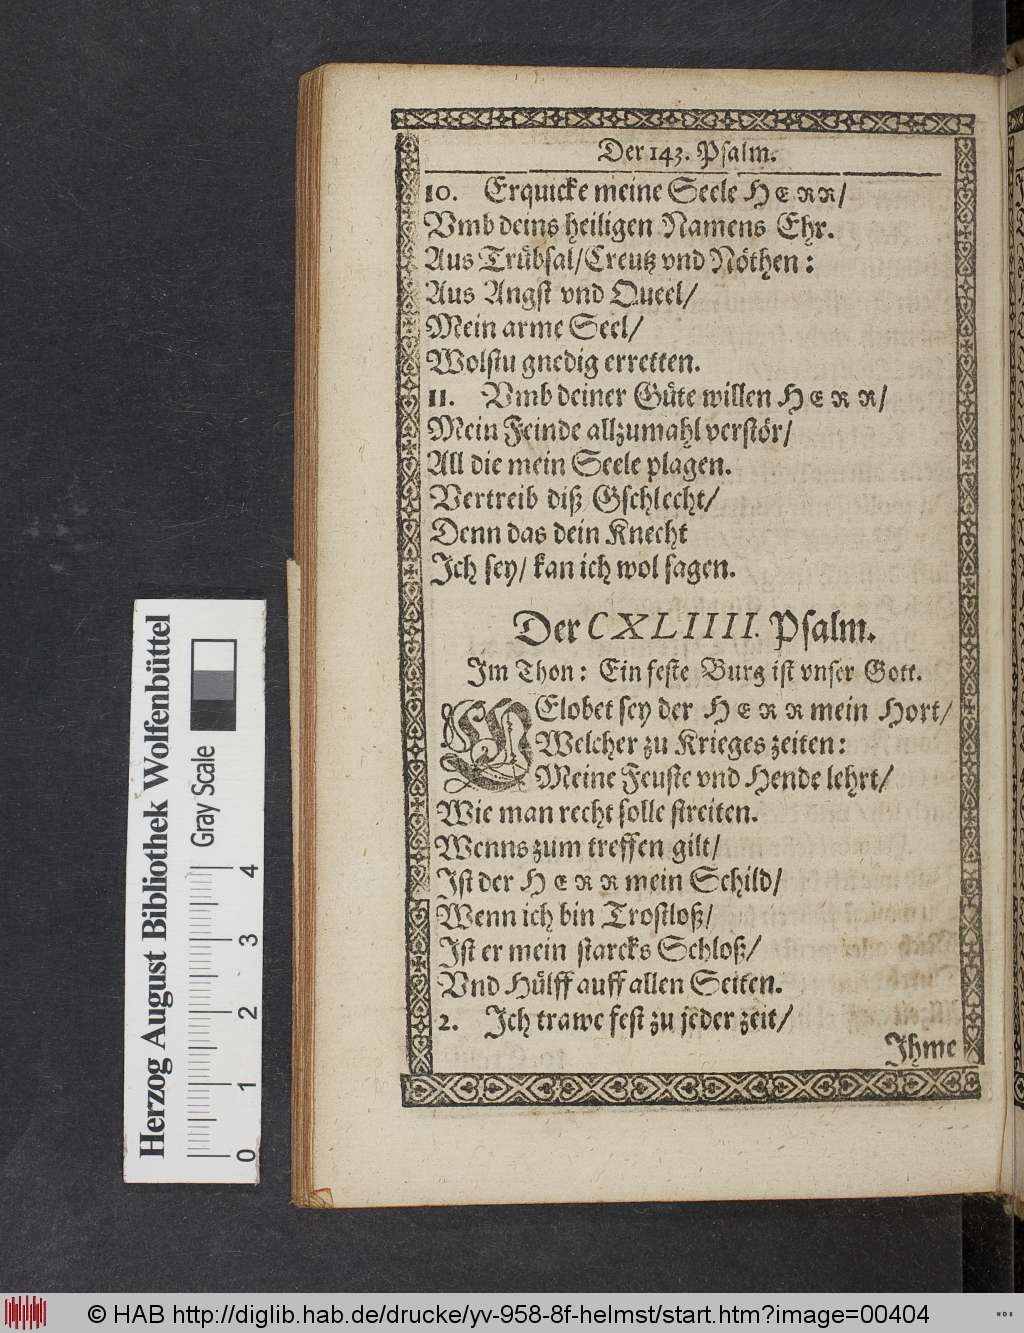 Der 143. Psalm.
10. Erquicke meine Seele HERR/
Vmb deins heiligen Namens Ehr.
Aus Trübsal/Creutz vnd Nöthen:
Aus Angst vnd Queel/
Mein arme Seel/
Wolstu gnedig erretten.
11. Vmb deiner Güte willen HERR/
Mein Feinde allzumahl verstör/
All die mein Seele plagen.
Vertreib diß Gschlecht/
Denn das dein Knecht
Ich sey/ kan ich wol sagen.
Der CXLIIII. Psalm.
Im Thon: Ein feste Burg ist vnser Gott.
GElobet sey der HERR mein Hort/
Welcher zu Krieges zeiten:
Meine Feuste vnd Hende lehrt/
Wie man recht solle streiten.
Wenns zum treffen gilt/
Ist der HERR mein Schild/
Wenn ich bin Trostloß/
Ist er mein starcks Schloß/
Vnd Hülff auff allen Seiten.
2. Ich trawe fest zu jeder zeit/
Ihme
Herzog August Bibliothek Wolfenbüttel
Gray Scale
0 1 2 3 4
© HAB http://diglib.hab.de/drucke/yv-958-8f-helmst/start.htm?image=00404